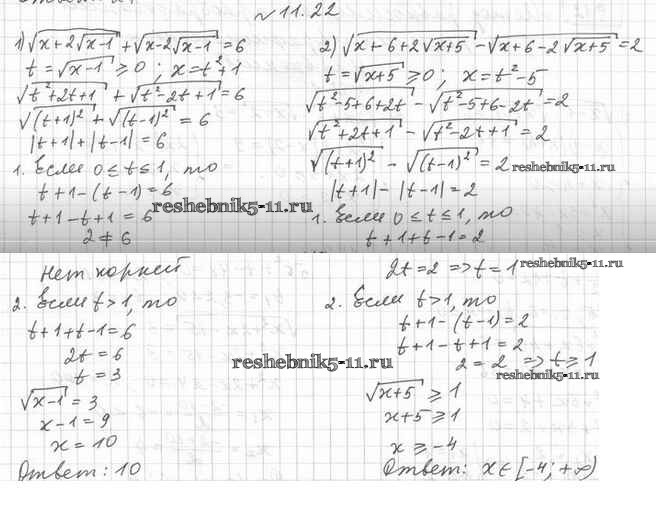 №11.22
1) √(x+2√(x-1)) + √(x-2√(x-1)) = 6
t = √(x-1) ⩾ 0 ; x = t²+1
√(t²+2t+1) + √(t²-2t+1) = 6
√((t+1)²) + √((t-1)²) = 6
|t+1|+|t-1| = 6
1. Если 0 ≤ t ≤ 1, то
t+1-(t-1) = 6
t+1-t+1 = 6
2 ≠ 6
нет корней
2. Если t>1, то
t+1+t-1=6
2t = 6
t = 3
√(x-1) = 3
x-1 = 9
x = 10
Ответ: 10
2) √(x+6+2√(x+5)) - √(x+6-2√(x+5)) = 2
t = √(x+5) ⩾ 0; x = t²-5
√(t²-5+6+2t) - √(t²-5+6-2t) = 2
√(t²+2t+1) - √(t²-2t+1) = 2
√((t+1)²) - √((t-1)²) = 2
|t+1| - |t-1| = 2
1. Если 0 ≤ t ≤ 1, то
t+1+t-1=2
2t = 2 => t = 1
2. Если t>1, то
t+1-(t-1) = 2
t+1-t+1 = 2
2 = 2 => t ⩾ 1
√(x+5) ⩾ 1
x+5 ⩾ 1
x ⩾ -4
Ответ: x ∈ [-4; +∞)
reshebnik5-11.ru
reshebnik5-11.ru
reshebnik5-11.ru
reshebnik5-11.ru
reshebnik5-11.ru